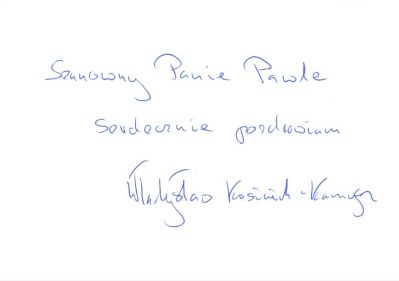 Szanowny Panie Pawle
serdecznie pozdrawiam
Władysław Kosiniak-Kamysz